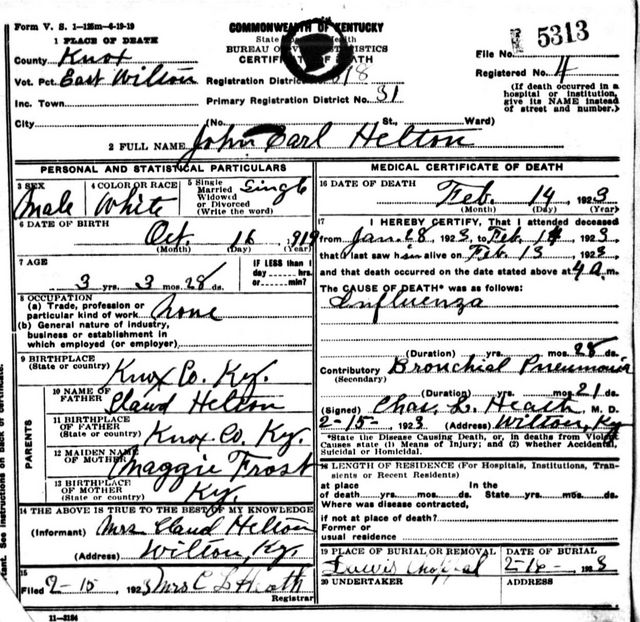 Form V. S. 1-125m-4-19-19
COMMONWEALTH OF KENTUCKY
State Health
BUREAU OF VITAL STATISTICS
CERTIFICATE OF DEATH
5313
1 PLACE OF DEATH
County Knox
File No.
Vot. Pct. East Wilton
Registration District 318
Registered No. 4
Inc. Town
Primary Registration District No. 31
(If death occurred in a
hospital or institution,
give its NAME instead
of street and number.)
City (No. St., Ward)
2 FULL NAME John Earl Helton
PERSONAL AND STATISTICAL PARTICULARS
3 SEX Male
4 COLOR OR RACE White
5 Single
Married
Widowed
or Divorced
(Write the word) Single
6 DATE OF BIRTH
Oct. 16 1919
(Month) (Day) (Year)
7 AGE
3 yrs. 3 mos. 28 ds.
IF LESS than 1
day hrs.
or min?
8 OCCUPATION
(a) Trade, profession or
particular kind of work None
(b) General nature of industry,
business or establishment in
which employed (or employer)
9 BIRTHPLACE
(State or country) Knox Co. Ky.
PARENTS
10 NAME OF
FATHER Claud Helton
11 BIRTHPLACE
OF FATHER
(State or country) Knox Co. Ky.
12 MAIDEN NAME
OF MOTHER Maggie Frost
13 BIRTHPLACE
OF MOTHER
(State or country) Ky.
14 THE ABOVE IS TRUE TO THE BEST OF MY KNOWLEDGE
(Informant) Mrs Claud Helton
(Address) Wilton, Ky.
15
Filed 2-15, 1923 Mrs C L Heath
Registrar
11-3184
MEDICAL CERTIFICATE OF DEATH
16 DATE OF DEATH
Feb. 14 1923
(Month) (Day) (Year)
17 I HEREBY CERTIFY, That I attended deceased
from Jan. 28, 1923, to Feb. 14, 1923,
that I last saw him alive on Feb 13, 1923,
and that death occurred on the date stated above at 4 a.m.
The CAUSE OF DEATH* was as follows:
Influenza
(Duration) yrs. mos. 28 ds.
Contributory Bronchial Pneumonia
(Secondary)
(Duration) yrs. mos. 21 ds.
(Signed) Chas. L. Heath, M. D.
2-15-, 1923 (Address) Wilton, Ky
*State the Disease Causing Death, or, in deaths from Violent
Causes state (1) Means of Injury; and (2) whether Accidental,
Suicidal or Homicidal.
18 LENGTH OF RESIDENCE (For Hospitals, Institutions, Tran-
sients or Recent Residents)
at place In the
of death yrs. mos. ds. State yrs. mos. ds.
Where was disease contracted,
if not at place of death?
Former or
usual residence
19 PLACE OF BURIAL OR REMOVAL
DATE OF BURIAL
2-16-, 1923
20 UNDERTAKER
ADDRESS
tant. See instructions on back of certificate.